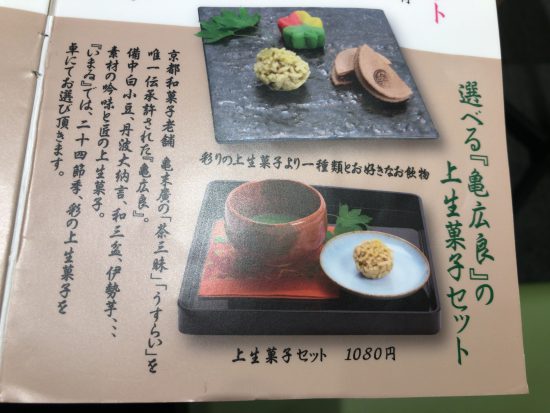 選べる『亀広良』の
上生菓子セット
彩りの上生菓子より一種類とお好きなお飲物
上生菓子セット 1080円
京都和菓子老舗 亀末廣の「茶三昧」「うすらい」を
唯一伝承許された『亀広良』。
備中白小豆、丹波大納言、和三盆、伊勢芋、、
素材の吟味と匠の上生菓子。
『いまゐ』では、二十四節季、彩の上生菓子を
卓にてお選び頂きます。
ト